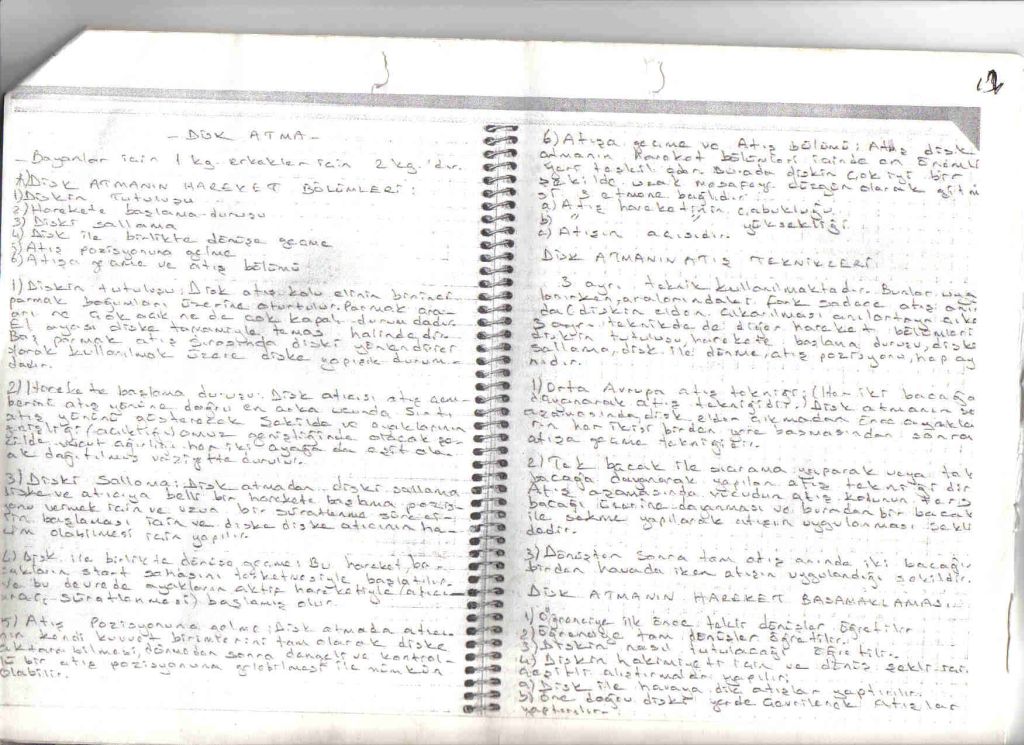 - DİSK ATMA -
- Bayanlar için 1 kg. erkekler için 2 kg.'dır.
A) DİSK ATMANIN HAREKET BÖLÜMLERİ:
1) Diskin Tutuluşu
2) Harekete başlama duruşu
3) Diski sallama
4) Disk ile birlikte dönüşe geçme
5) Atış pozisyonuna gelme
6) Atışa geçme ve atış bölümü
1) Diskin tutuluşu: Disk atış kolu elinin birinci
parmak boğumları üzerine oturtulur. Parmak ara-
ları ne çok açık ne de çok kapalı durumdadır.
El ayası diske tamamiyle temas halindedir.
Baş parmak atış sırasında diski yönlendirici
olarak kullanılmak üzere diske yapışık durum-
dadır.
2) Harekete başlama duruşu: Disk atıcısı atış çem-
berini atış yönüne doğru en arka ucunda Sırtı
atış yönünü gösterecek şekilde ve ayaklarının
genişliği (açıklığı) omuz genişliğinde olacak şe-
kilde, vücut ağırlığı her iki ayağa da eşit olar-
ak dağıtılmış vaziyette durulur.
3) Diski Sallama: Disk atmadan diski sallama
diske ve atıcıya belli bir harekete başlama pozis-
yonu vermek için ve uzun bir süratlenme süreci-
nin başlaması için ve diske diske atıcının ha-
kim olabilmesi için yapılır.
4) Disk ile birlikte dönüşe geçme: Bu hareket, ba-
cakların start sahasını terketmesiyle başlatılır
ve bu devrede ayakların aktif hareketiyle (atıcı
süratlenmesi) başlamış olur.
5) Atış Pozisyonuna gelme: Disk atmada atıcı-
nın kendi kuvvet birimlerini tam olarak diske
aktarabilmesi, dönüşten sonra dengeli ve kontrol-
lü bir atış pozisyonuna gelebilmesi ile mümkün
olabilir.
6) Atışa geçme ve Atış bölümü: Atış disk
atmanın Hareket bölümleri içinde en Önemli
yeri teşkil eder. Burada diskin çok iyi bir
şekilde uzak mesafeye düzgün olarak gitme
si 3 etmene bağlıdır.
a) Atış hareketinin çabukluğu
b) " " yüksekliği
c) Atışın açısıdır.
DİSK ATMANIN ATIŞ TEKNİKLERİ:
3 ayrı teknik kullanılmaktadır. Bunlar uygu
lanırken, aralarındaki fark sadece atış anın
da (diskin elden çıkarılması anı) ortaya çıkar
3 ayrı teknikde de diğer hareket bölümleri
diskin tutuluşu, harekete başlama duruşu, diski
sallama, disk ile dönme, atış pozisyonu, hep ay
nıdır.
1) Orta Avrupa atış tekniği: (Her iki bacağa
dayanarak atış tekniğidir.) Disk atmanın
aşamasında, disk elden çıkmadan Önce ayakla
rın her ikisi birden yere basmasından sonra
atışa geçme tekniğidir.
2) Tek bacak ile sıçrama yaparak veya tek
bacağa dayanarak yapılan atış tekniği dir
Atış aşamasında vücudun atış kolunun ters
bacağı üzerine dayanması ve buradan bir bacak
ile sekme yapılarak atışın uygulanması şekli
dedir.
3) Dönüşten sonra tam atış anında iki bacağın
birden havada iken atışın uygulandığı şekildir.
DİSK ATMANIN HAREKET BASAMAKLAMASI
1) Öğrenciye ilk Önce taklit dönüşler öğretilir
2) Öğrenciye tam dönüşler öğretilir.
3) Diskin nasıl tutulacağı öğretilir.
4) Diskin hakimiyeti için ve dönüş şekli için
çeşitli alıştırmalar yapılır.
Disk ile havaya dik atışlar yaptırılır.
5) Öne doğru diski yerde çevrilerek atışlar
yaptırılır.